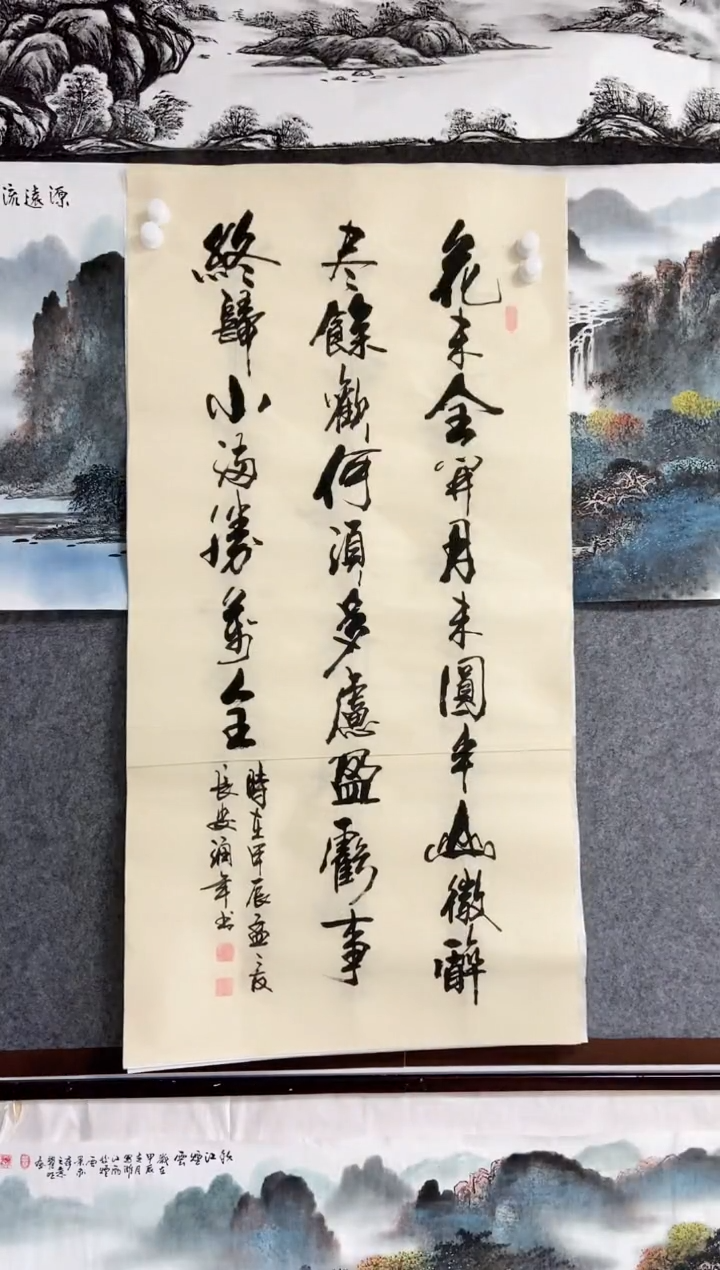 源遠流
花未全开月未圓半山微醉
尽餘歡何須多慮盈虧事
終歸小滿勝萬全
時在甲辰孟夏
長安潤年书
秋江煙雲